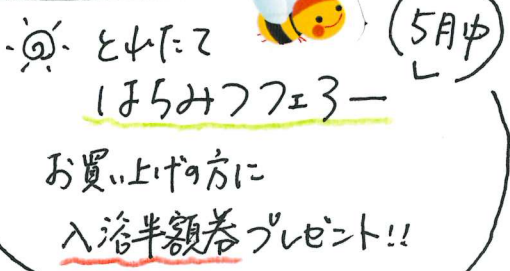 とれたて
はちみつフェアー
5月中
お買い上げの方に
入浴半額券プレゼント!!